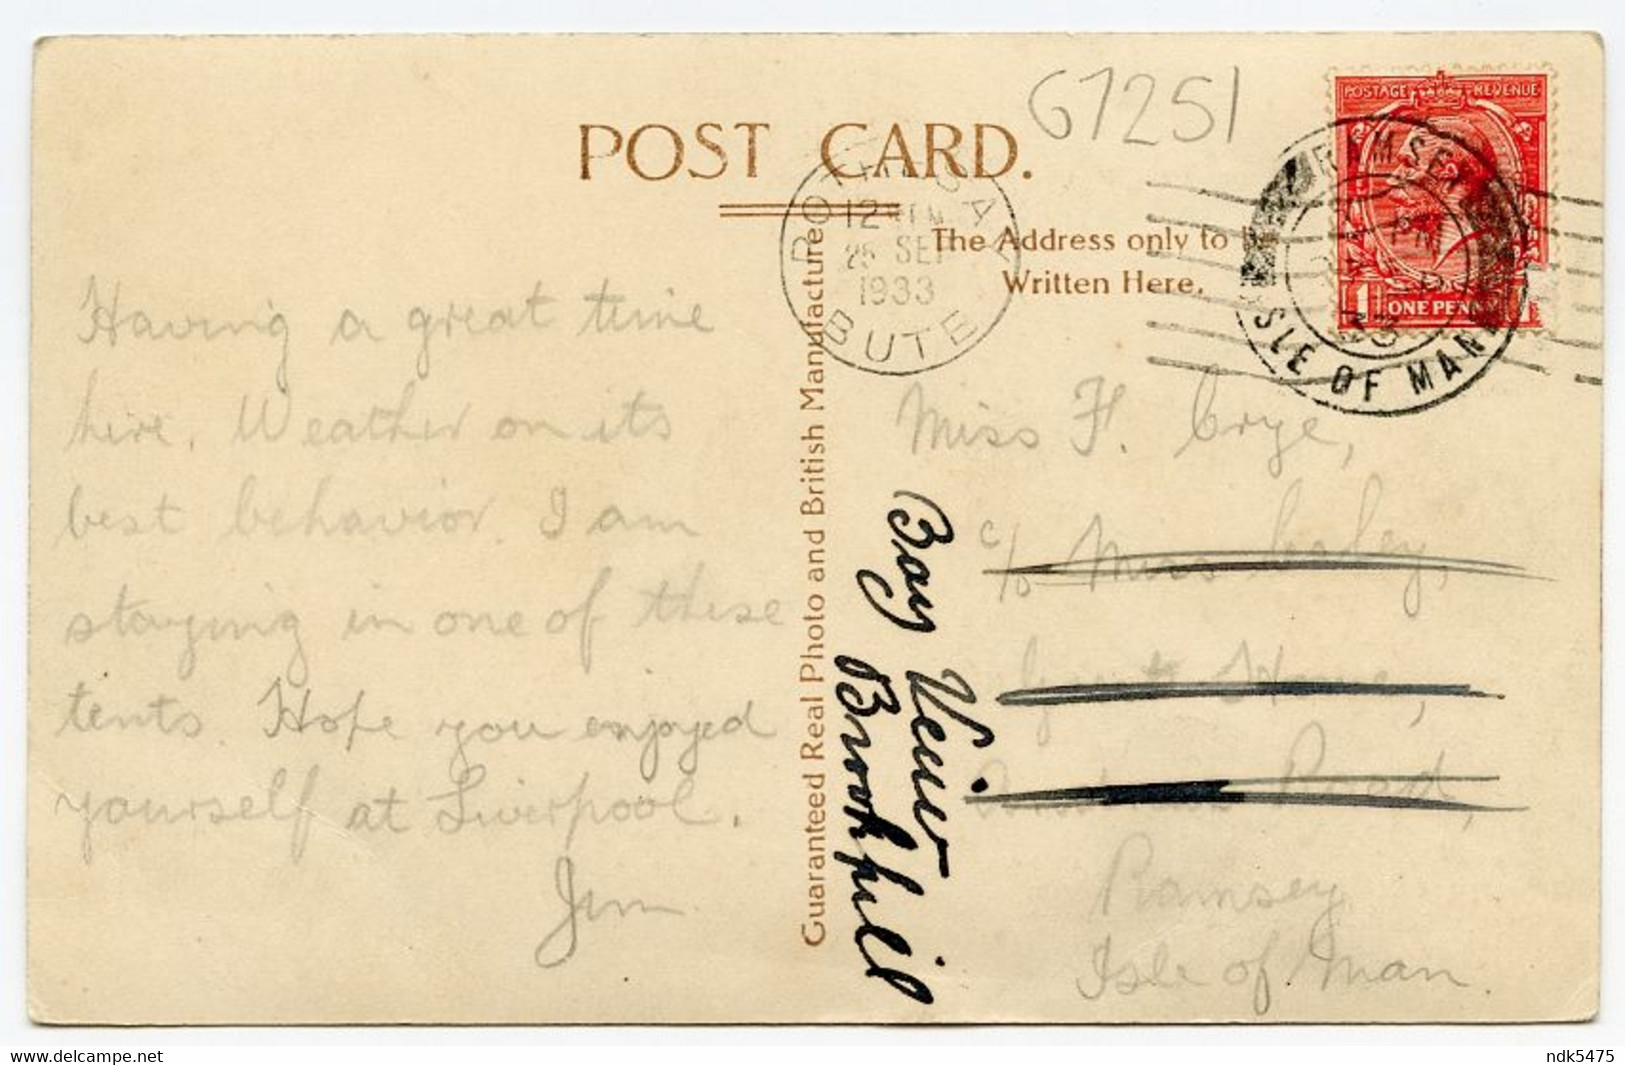 67251
POST CARD.
The Address only to
Written Here.
ROTHESAY
12
25 SEP
1933
BUTE
POSTAGE REVENUE
1 ONE PENNY 1
RAMSEY
PM
33
ISLE OF MAN
Guaranteed Real Photo and British Manufacture
Having a great time
here. Weather on its
best behavior. I am
staying in one of these
tents. Hope you enjoyed
yourself at Liverpool.
Jim
Miss F. Crye,
c/o Miss Caley,
Road,
Ramsey
Isle of Man.
Bay Veiw
Brookhill
ndk5475